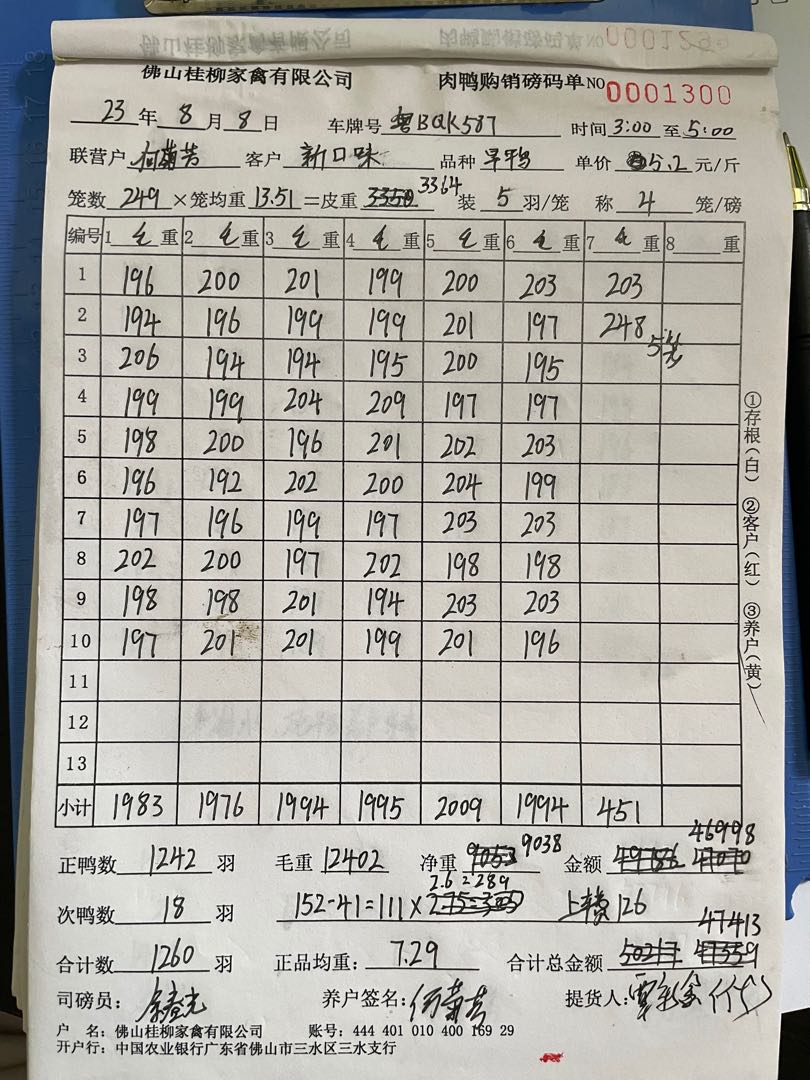 佛山桂柳家禽有限公司 肉鸭购销磅码单 NO 0001299
佛山桂柳家禽有限公司 肉鸭购销磅码单 NO 0001300
23 年 8 月 8 日 车牌号 粤BQK587 时间 3:00 至 5:00
联营户 何菊芳 客户 新口味 品种 旱鸭 单价 5.2 元/斤
笼数 249 ×笼均重 13.51 =皮重 3350 3364 装 5 羽/笼 称 4 笼/磅
编号 1 毛 重 2 毛 重 3 毛 重 4 毛 重 5 毛 重 6 毛 重 7 毛 重 8 重
1 196 200 201 199 200 203 203
2 194 196 199 199 201 197 248 5笼
3 206 194 194 195 200 195
4 199 199 204 209 197 197
5 198 200 196 201 202 203
6 196 192 202 200 204 199
7 197 196 199 197 203 203
8 202 200 197 202 198 198
9 198 198 201 194 203 203
10 197 201 201 199 201 196
11
12
13
小计 1983 1976 1994 1995 2009 1994 451
46998
正鸭数 1242 羽 毛重 12402 净重 9053 9038 金额 47070
2.6=289
次鸭数 18 羽 152-41=111× 126
47413
合计数 1260 羽 正品均重: 7.29 合计总金额 47359
司磅员: 养户签名: 何菊芳 提货人:
户 名: 佛山桂柳家禽有限公司 账号: 444 401 010 400 169 29
开户行: 中国农业银行广东省佛山市三水区三水支行
①存根(白) ②客户(红) ③养户(黄)